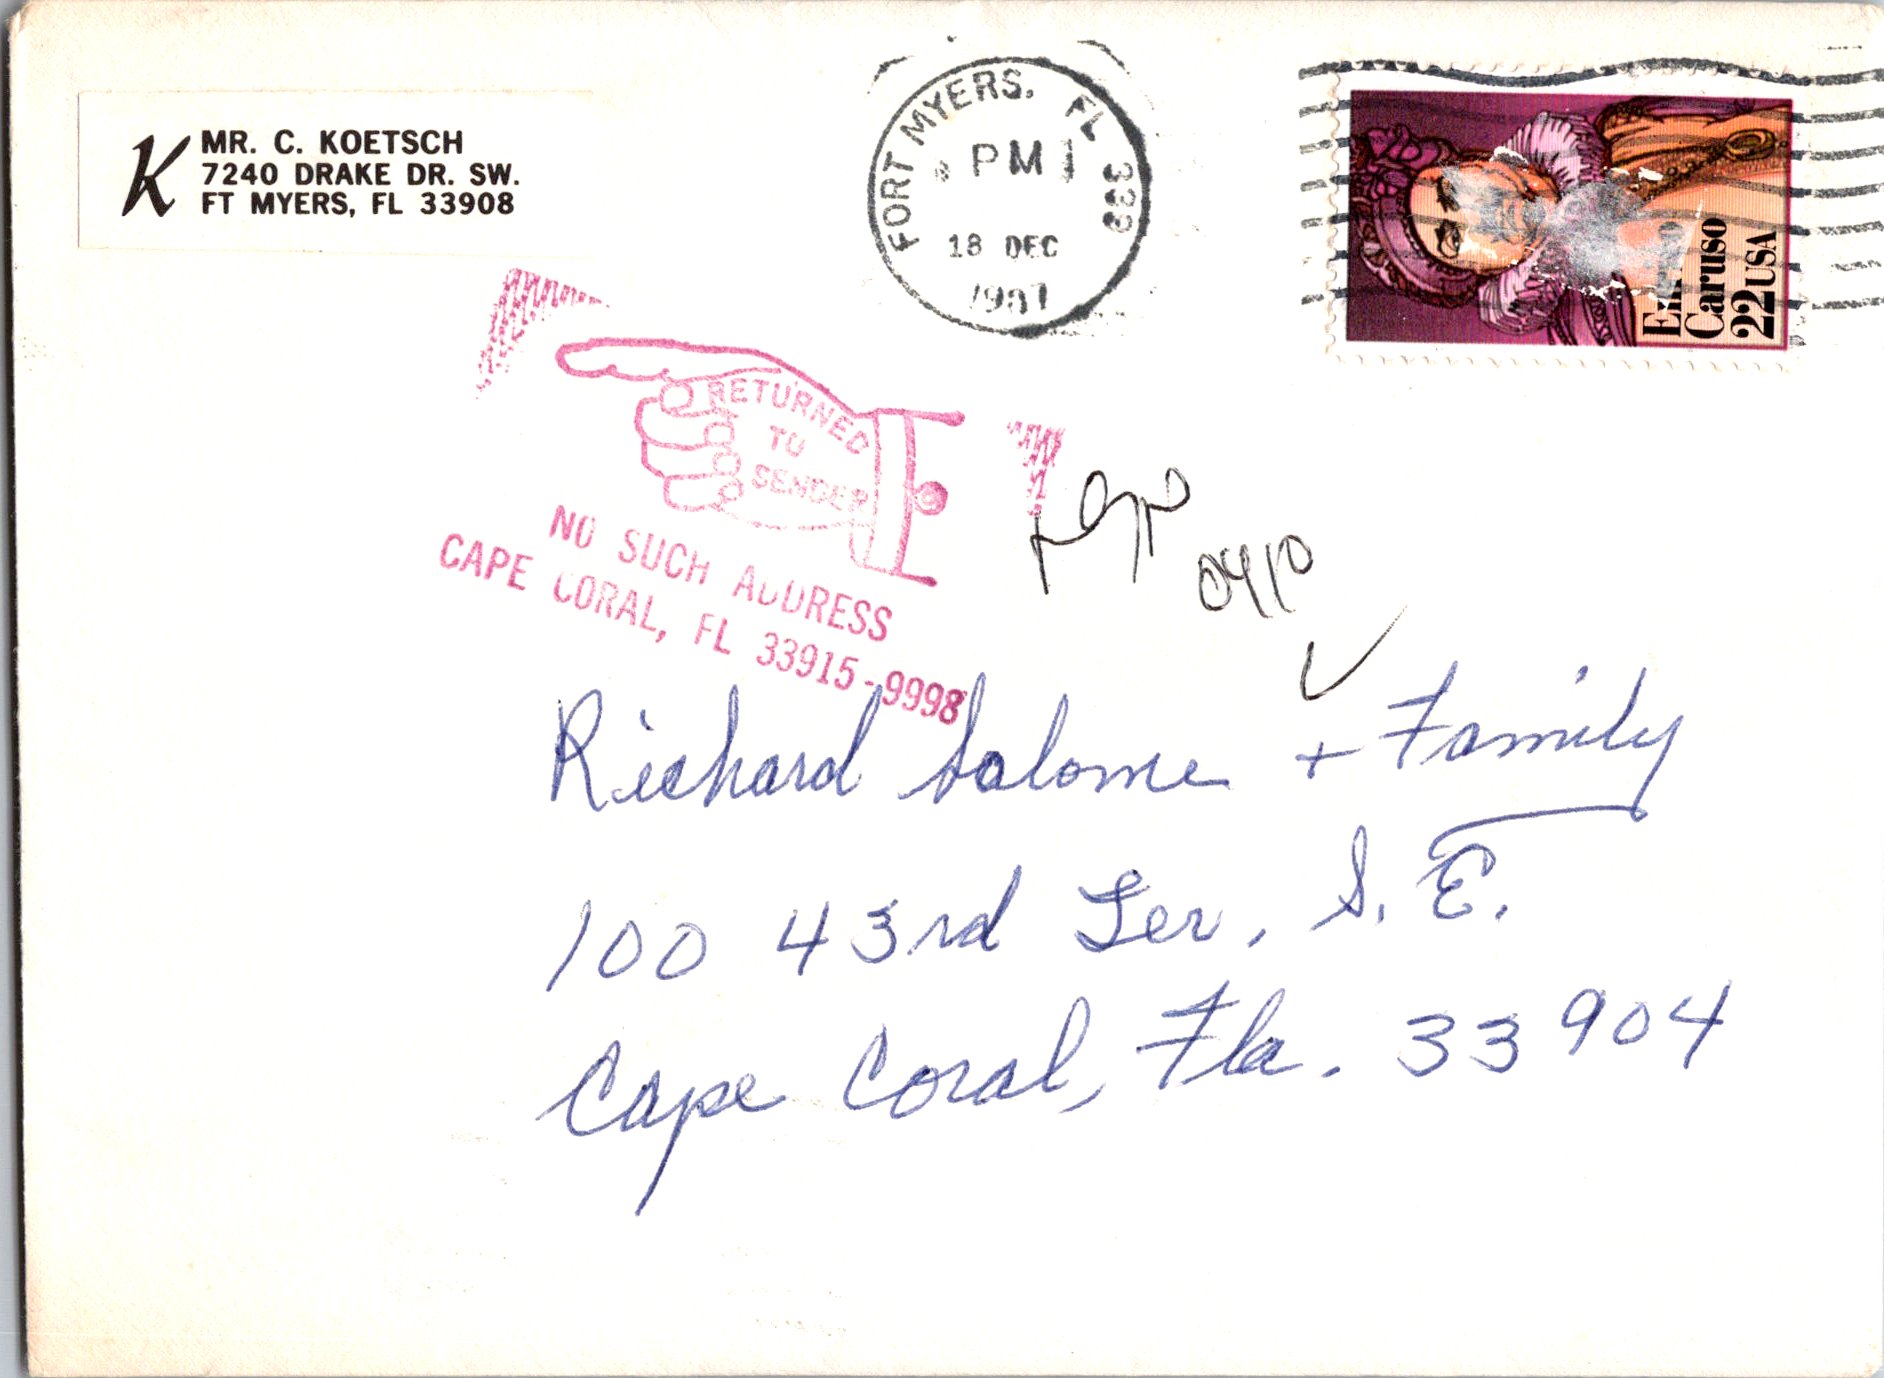 K
MR. C. KOETSCH
7240 DRAKE DR. SW.
FT MYERS, FL 33908
FORT MYERS, FL 339
PM
18 DEC
1987
Caruso
22USA
RETURNED
TO
SENDER
NO SUCH ADDRESS
CAPE CORAL, FL 33915-9998
0410
Richard Salome + Family
100 43rd Ter, S. E.
Cape Coral, Fla. 33904